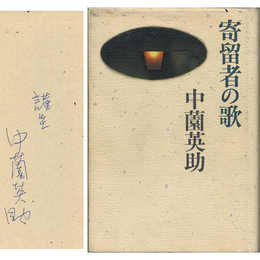 謹呈
中薗英助
寄留者の歌
中薗英助